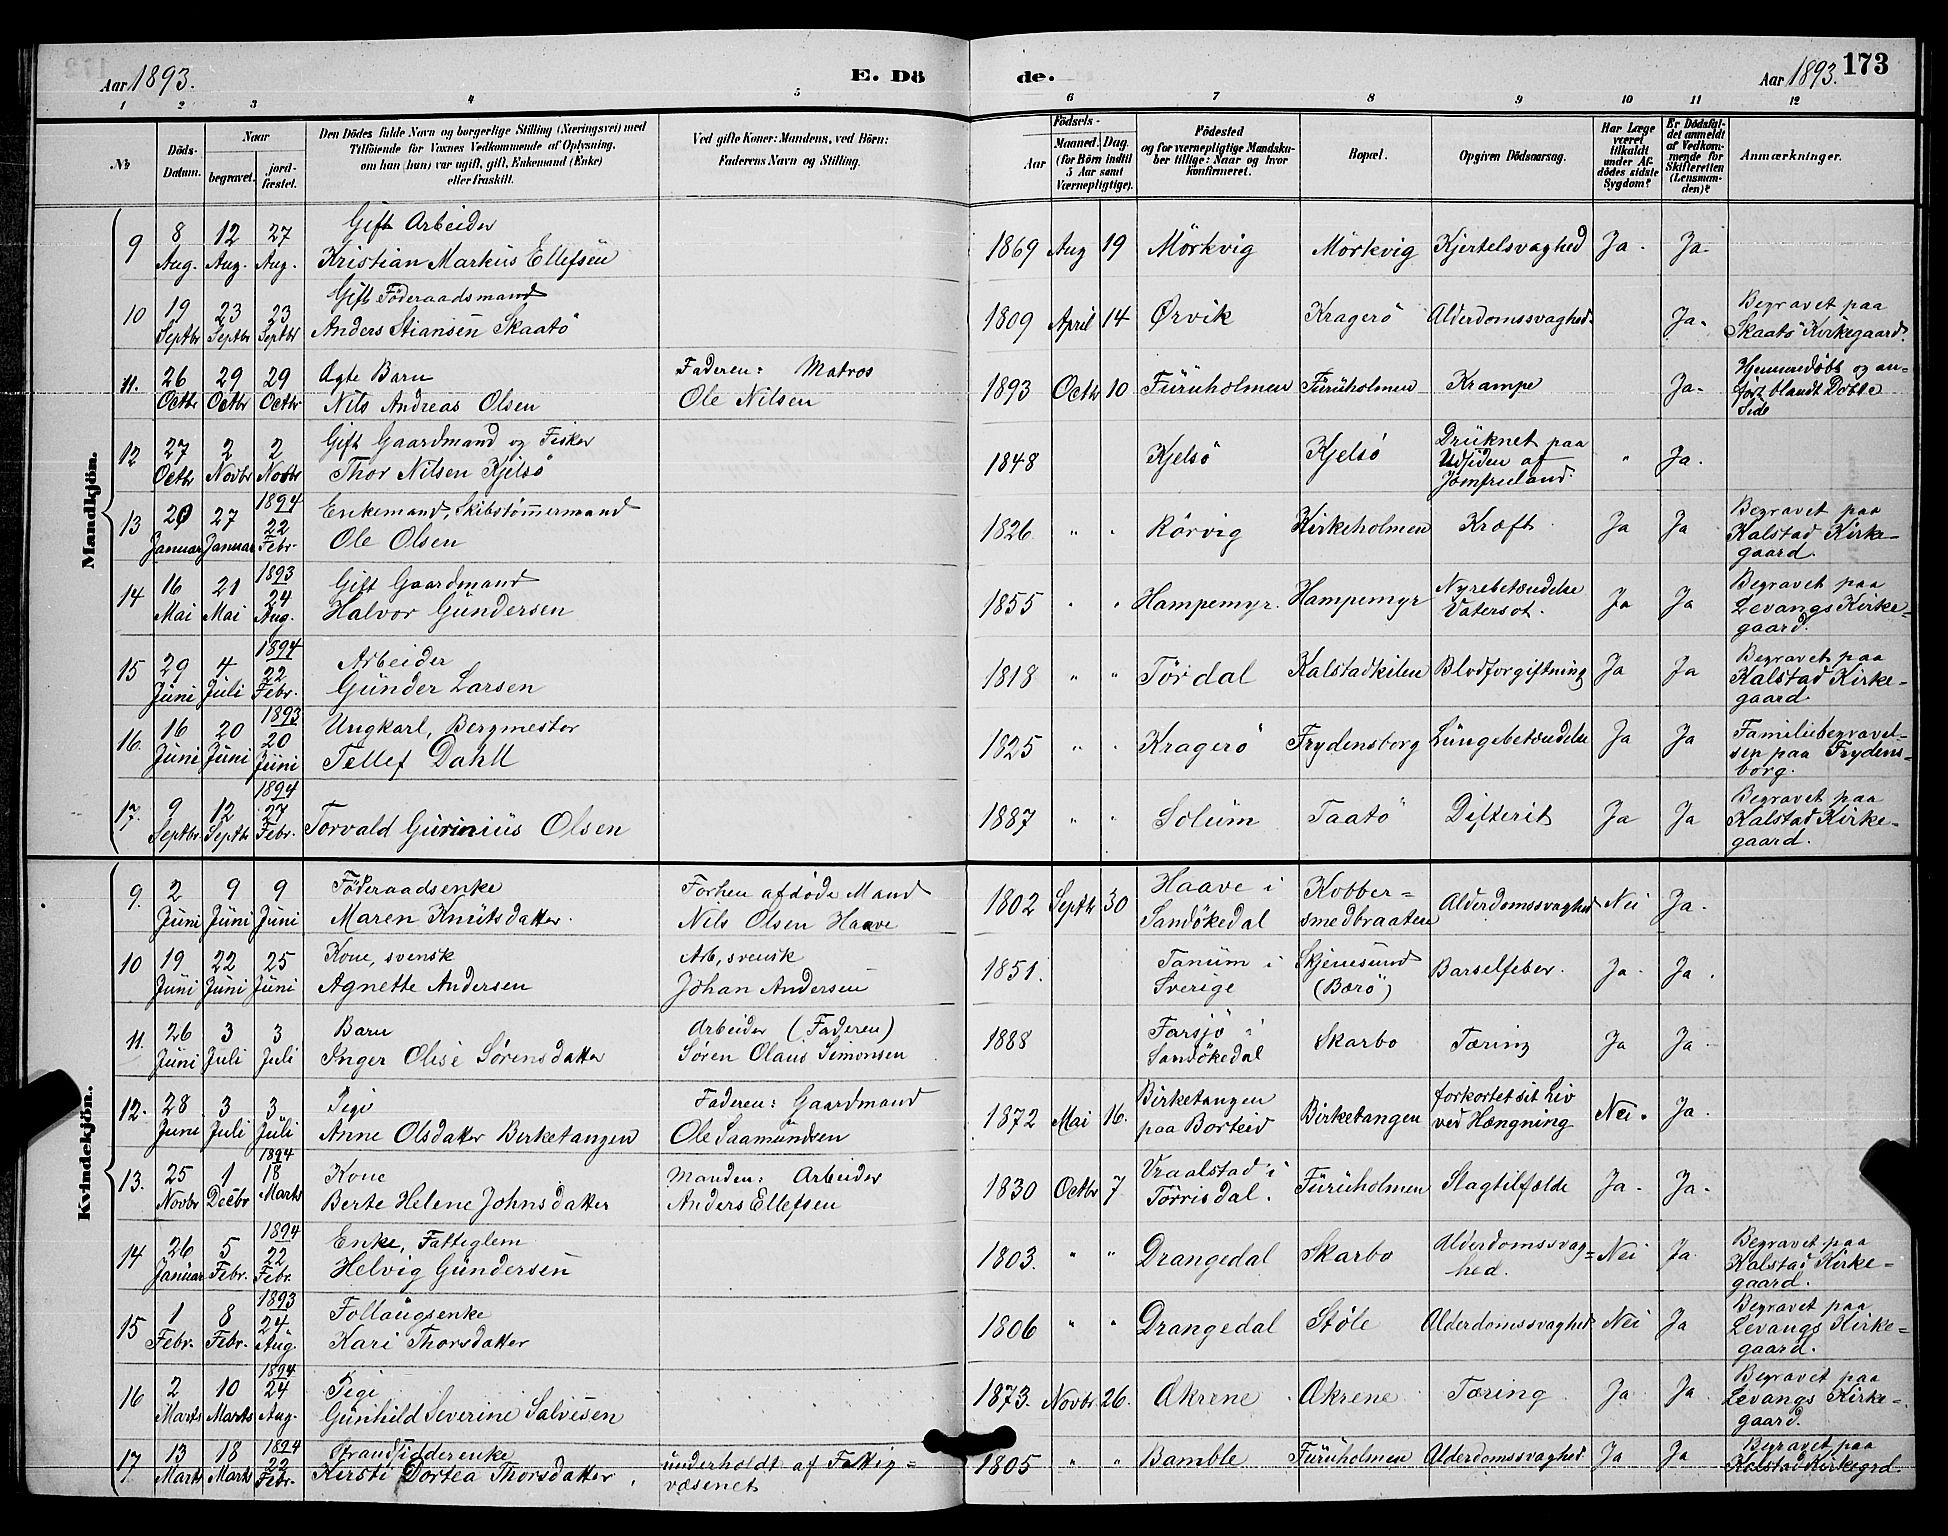 Aar 1893. E. Dö de. Aar 1893. 173
1 2 3 4 5 6 7 8 9 10 11 12
№ Döds-Datum. Naar begravet. jordfæstet. Den Dödes fulde Navn og borgerlige Stilling (Næringsvei) med Tilföiende för Voxnes Vedkommende af Oplysning, om han (hun) var ugift, gift, Enkemand (Enke) eller fraskilt. Ved gifte Koner: Mandens, ved Börn: Faderens Navn og Stilling. Födsels- Aar Maaned. Dag. (for Börn indtil 5 Aar samt Værnepligtige). Födested og for værnepligtige Mandskuber tillige: Naar og hvor konfirmeret. Bopæl. Opgiven Dödsaarsag. Har Læge været tilkaldt under Afdödes sidste Sygdom? Er Dödsfaldet anmeldt af Vedkommende for Skifteretten (Lensmanden)? Anmærkninger.
Mandkjön.
9 8 Aug. 12 Aug. 27 Aug. Gift Arbeider Kristian Markus Ellefsen 1869 Aug 19 Mörkvig Mörkvig Kjertelsvaghed Ja Ja
10 19 Septbr 23 Septbr 23 Septbr Gift Föderaadsmand Anders Stiansen Skaatö 1809 April 14 Ørvik Kragerö Alderdomssvaghed Ja Begravet paa Skaatö Kirkegaard.
11. 26 Octbr 29 Octbr 29 Octbr Ægte Barn Nils Andreas Olsen Faderen: Matros Ole Nilsen 1893 Octbr 10 Furuholmen Furuholmen Krampe Ja Hjemmedøbt og anført blandt Döbte Side
12 27 Octbr 2 Novbr 2 Novbr Gift Gaardmand og Fisker Thor Nilsen Kjelsö 1848 Kjelsö Kjelsö Druknet paa Udsiden af Jomfruland. " Ja.
13 20 Januar 27 Januar 1894 22 Febr. Enkemand, Skibstømmermand Ole Olsen 1826 " " Rörvig Kirkeholmen Kræft Ja Ja Begravet paa Kalstad Kirkegaard.
14 16 Mai 21 Mai 1893 24 Aug. Gift Gaardmand Halvor Gundersen 1855 " " Hampemyr. Hampemyr Nyrebetændelse Vatersot. Ja Ja Begravet paa Levangs Kirkegaard.
15 29 Juni 4 Juli 1894 22 Febr. Arbeider Gunder Larsen 1818 " " Tördal Kalstadkilen Blodforgiftning Ja Ja Begravet paa Kalstad Kirkegaard
16. 16 Juni 20 Juni 1893 20 Juni Ungkarl, Bergmester Tellef Dahll 1825 " " Kragerö Frydensborg Lungebetændelse Ja Ja Familiebegravelsen paa Frydensborg.
17. 9 Septbr 12 Septbr 1894 27 Febr. Torvald Gurinius Olsen 1887 " " Solum Taatö Difterit Ja Ja Begravet paa Kalstad Kirkegaard.
Kvindekjön.
9. 2 Juni 9 Juni 9 Juni Föderaadsenke Maren Knutsdatter. Forhen afdöde Mand Nils Olsen Haave 1802 Septbr 30 Haave i Sandökedal Kobbersmedbraaten Alderdomssvaghed Nei Ja.
10 19 Juni 22 Juni 25 Juni Kone, svensk Agnette Andersen Arb, svensk Johan Andersen 1851. Tanum i Sverige Skjensund (Bærö) Barselfeber. Ja Ja.
11. 26 Juni 3 Juli 3 Juli Barn Inger Olise Sørensdatter Arbeider (Faderen) Søren Olaus Simonsen 1888 Farsjö i Sandökedal Skarbo Tæring Ja Ja
12. 28 Juni 3 Juli 3 Juli Pige Anne Olsdatter Birketangen Faderen: Gaardmand Ole Saamundsen 1872 Mai 16. Birketangen paa Borteid Birketangen forkortet sit Liv ved Hængning Nei. Ja.
13. 25 Novbr 1 Decbr 1894 18 Marts Kone Berte Helene Johnsdatter Manden: Arbeider Anders Ellefsen 1830 Octbr 7 Vraalstad i Törrisdal. Furuholmen Slagtilfælde Ja Ja
14 26 Januar 5 Febr. 1894 22 Febr. Enke, Fattiglem Helvig Gundersen 1803. " " Drangedal Skarbo Alderdomssvaghed. Nei Ja Begravet paa Kalstad Kirkegaard.
15 1 Febr. 8 Febr. 1893 24 Aug. Follaugsenke Kari Thorsdatter 1806 " " Drangedal Støle Alderdomssvaghed Nei Ja Begravet paa Levangs Kirkegaard.
16 2 Marts 10 Marts 1894 24 Aug. Pige Gunhild Severine Salvesen 1873. Novbr 26. Økrene Økrene Tæring Ja Ja Begravet paa Levangs Kirkegaard.
17 13 Marts 18 Marts 1894 22 Febr. Strandsidderenke Kirsti Dortea Thorsdatter underholdt af Fattigvæsenet 1805 " " Bamble Furuholmen Alderdomssvaghed Ja Ja Begravet paa Kalstad Kirkegrd.